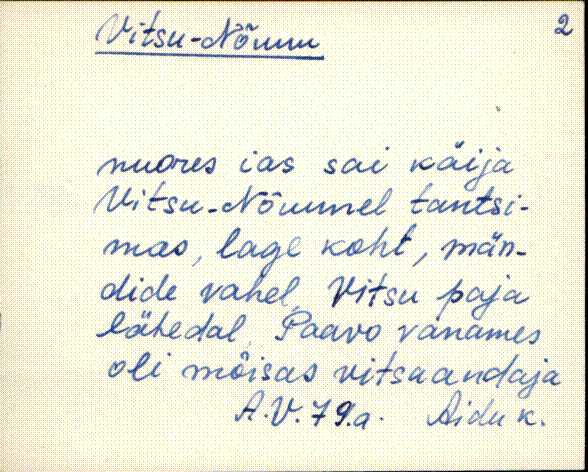 Vitsu-Nõmm
2
nuores ias sai käija
Vitsu-Nõmmel tantsi-
mas, lage koht, män-
dide vahel, Vitsu paja
lähedal, Paavo vanames
oli mõisas vitsaandaja
A.V. 79.a. Aidu k.